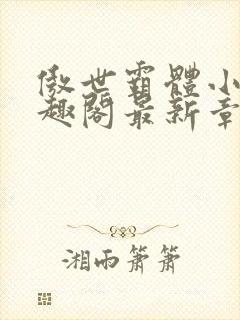 傲世霸體小
趣閣最新章
湘雨簫簫